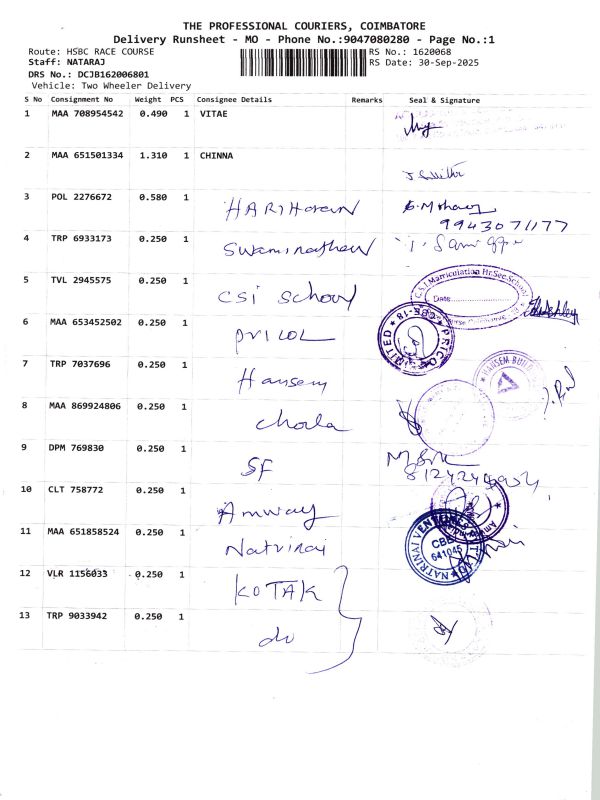 THE PROFESSIONAL COURIERS, COIMBATORE
Delivery Runsheet - MO - Phone No.:9047080280 - Page No.:1
Route: HSBC RACE COURSE
RS No.: 1620068
Staff: NATARAJ
RS Date: 30-Sep-2025
DRS No.: DCJB162006801
Vehicle: Two Wheeler Delivery
S No Consignment No Weight PCS Consignee Details Remarks Seal & Signature
1 MAA 708954542 0.490 1 VITAE
2 MAA 651501334 1.310 1 CHINNA
3 POL 2276672 0.580 1 HARIHaran
9943071177
4 TRP 6933173 0.250 1 Swaminathan
5 TVL 2945575 0.250 1 CSI School
C.S.I Matriculation Hr.Sec.School
Date
6 MAA 653452502 0.250 1 PRICOL
PRICOL LIMITED CBE-18
7 TRP 7037696 0.250 1 Hansem
HANSEM BUILD
8 MAA 869924806 0.250 1 Chola
9 DPM 769830 0.250 1 SF
10 CLT 758772 0.250 1 Amway
11 MAA 651858524 0.250 1 Natrinai
NATRINAI VENTURES
CBE
641045
12 VLR 1156033 0.250 1 KOTAK
13 TRP 9033942 0.250 1 do